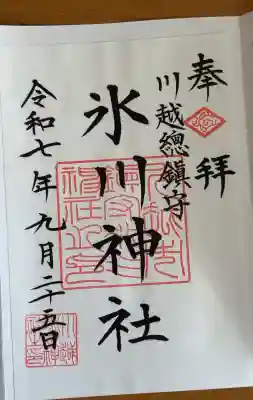 奉拝
川越總鎮守
氷川神社
令和七年九月二十五日